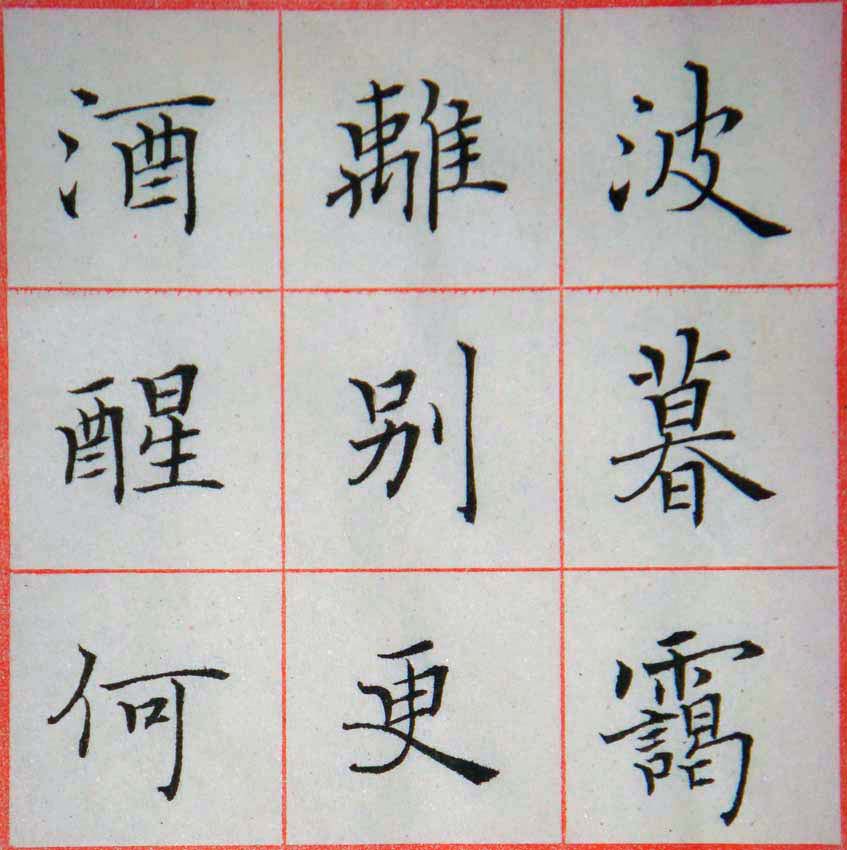 波暮靄
離别更
酒醒何